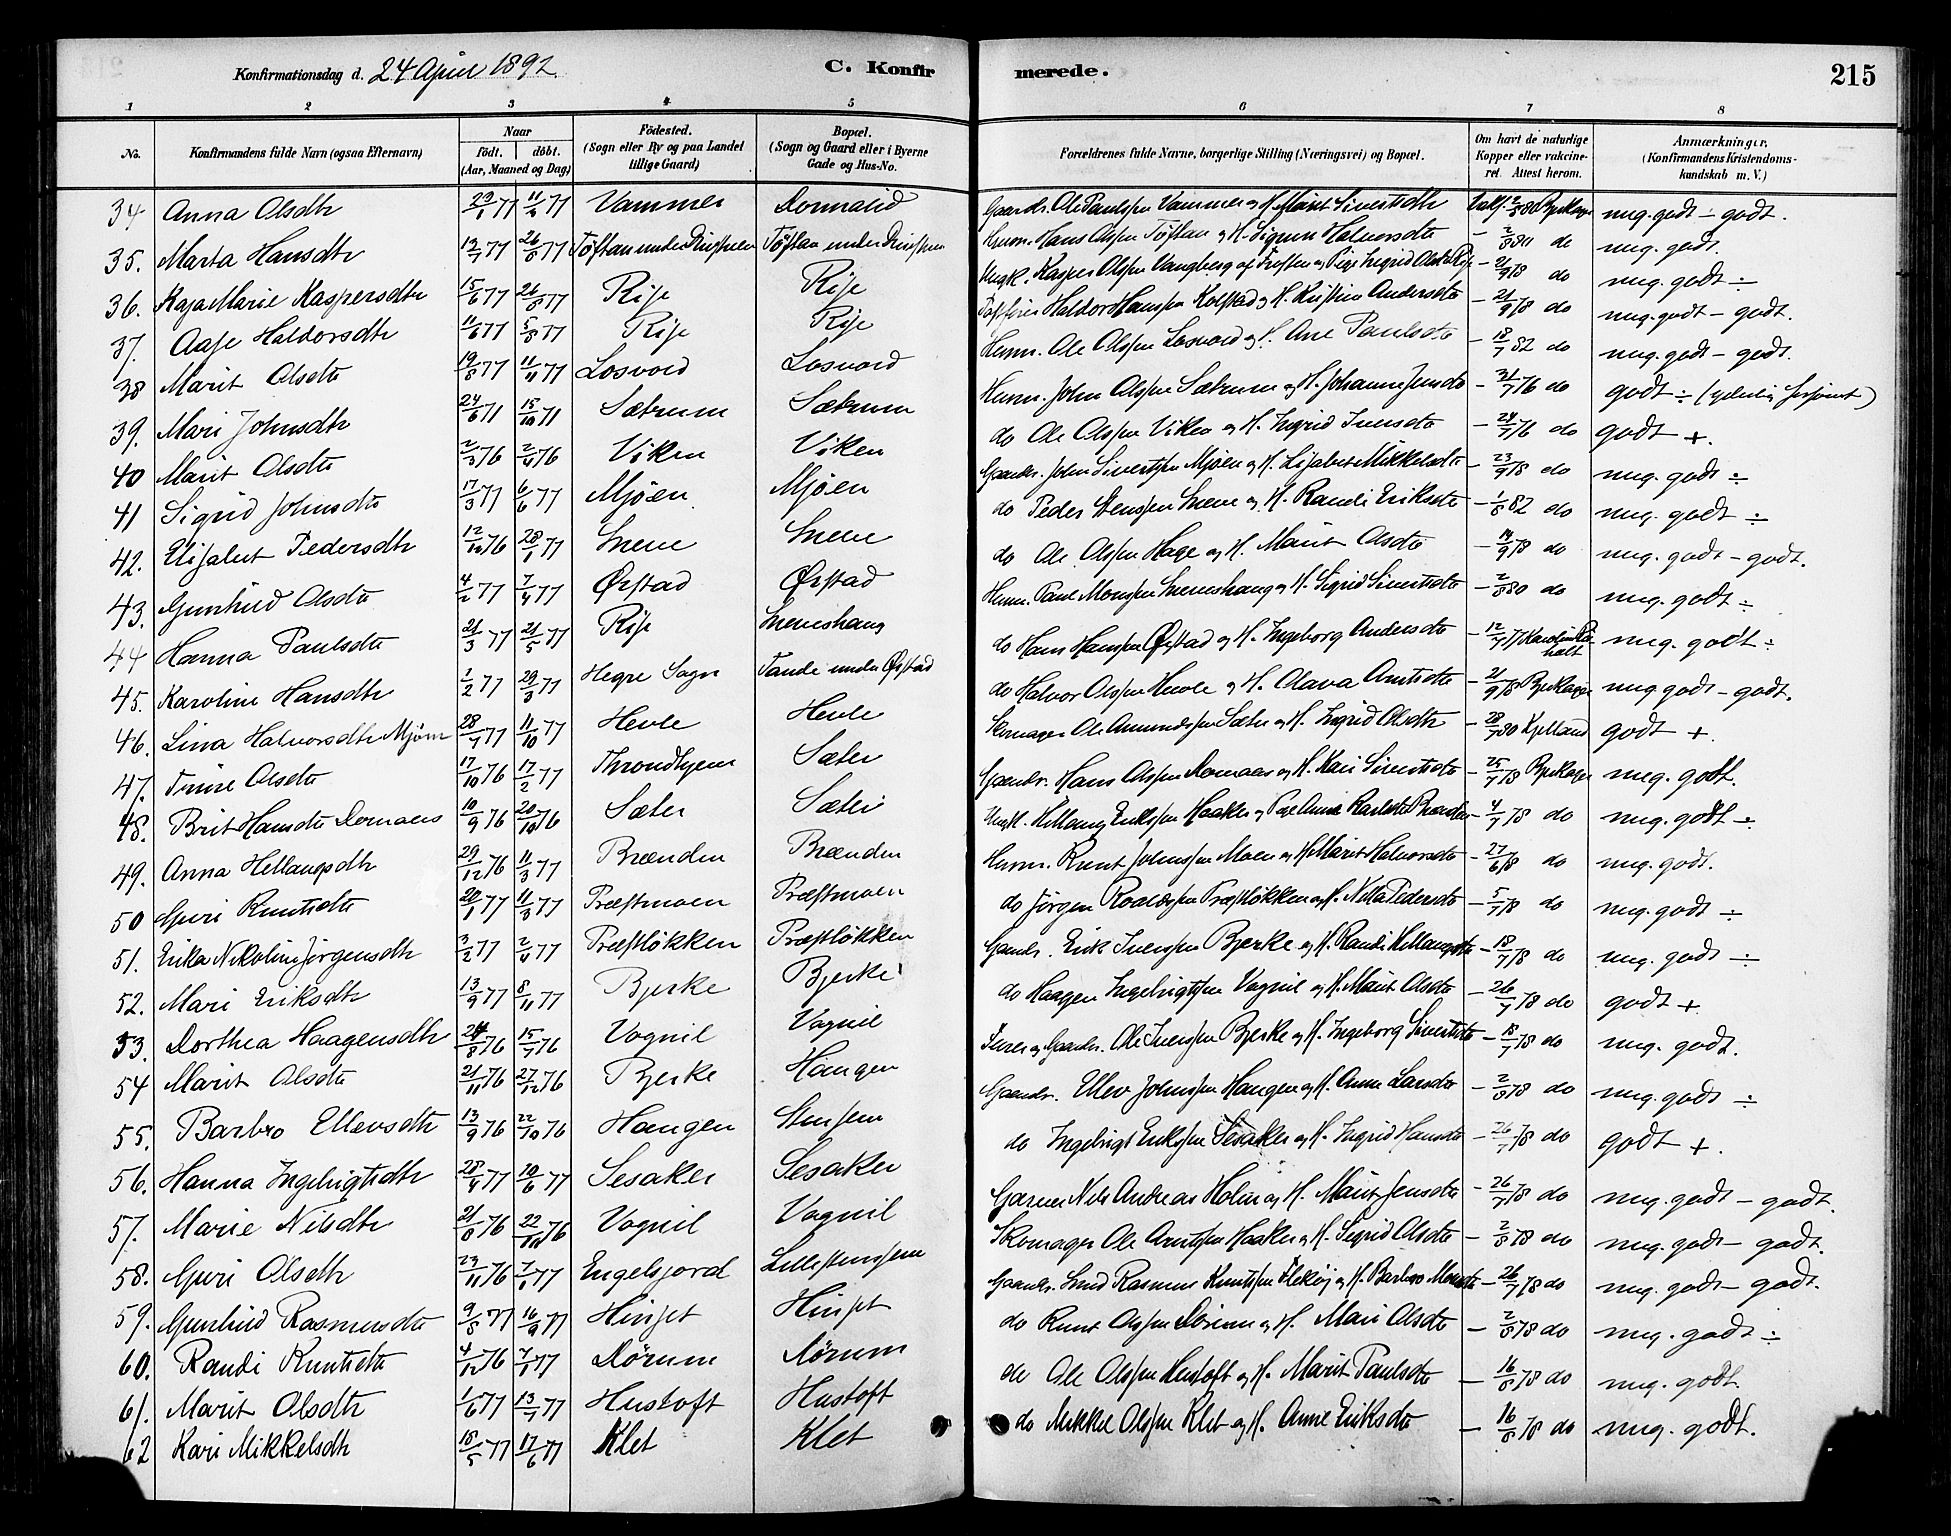 Konfirmationsdag d. 24 April 1892.
C. Konfirmerede.
215
1 2 3 4 5 6 7 8
No.
Konfirmandens fulde Navn (ogsaa Efternavn)
Naar
født. døbt.
(Aar, Maaned og Dag)
Födested.
(Sogn eller By og paa Landet tillige Gaard)
Bopæl.
(Sogn og Gaard eller i Byerne Gade og Hus-No.
Forældrenes fulde Navne, borgerlige Stilling (Næringsvei) og Bopæl.
Om havt de naturlige Kopper eller vakcineret. Attest herom.
Anmærkninger.
(Konfirmandens Kristendomskundskab m. V.)
34 Anna Olsdtr 29/1 77 11/3 77 Vammer Gaardr. Ole Paulsen Vammer og H. Marit Sivertsdtr meg. godt - godt.
35. Marta Hansdtr 19/7 77 26/8 77 Hans Olsen Töftan og H. Sigrun Halvorsdtr meg. godt.
36. Kaja Marie Kaspersdtr 15/6 77 26/8 77 Rise Rise Ungk. Kasper Olsen Vangberg og Pige Ingrid Olsdtr Rise - 21/9 78 do meg. godt ÷
37. Aase Haldorsdtr 11/6 77 5/8 77 Rise Rise Haldor Hansen Kolstad og H. Kristine Andersdtr - 21/9 78 do meg. godt - godt.
38 Marit Olsdtr 19/8 77 11/11 77 Losvold Losvold Husm. Ole Olsen Losvold og H. Ane Paulsdtr - 18/7 82 do meg. godt - godt.
39. Mari Johnsdtr 24/6 71 15/10 71 Sætrum Sætrum Husm. John Olsen Sætrum og H. Johanne Jensdtr - 31/7 76 do godt ÷
40 Marit Olsdtr 2/3 76 2/4 76 Viken Viken do Ole Olsen Viken og H. Ingrid Iversdtr - 24/7 76 do godt +.
41 Sigrid Johnsdtr 17/3 77 6/6 77 Mjöen Mjöen Gaardr. John Sivertsen Mjöen og H. Lisabet Mikkelsdtr - 23/9 78 do meg. godt ÷
42. Elisabet Pedersdtr 12/12 76 28/1 77 Sneve Sneve do Peder Stensen Sneve og H. Randi Eriksdtr - 1/8 82 do meg. godt ÷
43. Gunhild Olsdtr 4/2 77 7/4 77 Ørstad Ørstad do Ole Olsen Hage og H. Marit Olsdtr - 14/9 78 do meg. godt - godt.
44 Hanna Paulsdtr 21/3 77 21/5 77 Rise Sneveshaug Husm. Paul Monsen Sneveshaug og H. Sigrid Sivertsdtr - 2/8 80 do meg. godt ÷
45. Karoline Hansdtr 1/2 77 29/3 77 Hegre Sogn Tande under Ørstad do Hans Hansen Ørstad og H. Ingeborg Andersdtr - 12/7 77 meg. godt ÷
46. Lina Halvorsdtr Mjöen 28/7 77 11/10 77 Hevle Hevle do Halvor Olsen Hevle og H. Olava Arntsdtr - 21/9 78 meg godt - godt.
47. Trine Olsdtr 17/10 76 17/2 77 Throndhjem Sæter Skomager Ole Amundsen Sæter og H. Ingrid Olsdtr - 28/7 80 Kjelland godt +
48. Brit Hansdtr Domaas 10/9 76 20/10 76 Sæter Sæter Gaardr. Hans Olsen Domaas og H. Kari Sivertsdtr - 25/7 78 meg. godt.
49. Anna Hellaugsdtr 29/12 76 11/3 77 Brænden Brænden Ungk. Hellaug Eriksen Haaker og Pige Anne Karlsdtr Brænden - 4/7 78 do meg. godt ÷
50 Guri Knutsdtr 20/1 77 11/3 77 Præstmoen Præstmoen Husm. Knut Johnsen Moen og H. Marit Halvorsdtr - 27/6 78 do meg. godt.
51. Erika Nikoline Jörgensdtr 3/2 77 2/4 77 Præstlökken Præstlökken do Jörgen Roaldsen Præstlökken og H. Nella Pedersdtr - 5/7 78 do meg. godt ÷
52. Mari Eriksdtr 13/9 77 8/11 77 Bjerke Bjerke Gaardr. Erik Iversen Bjerke og H. Randi Hellaugsdtr - 18/7 78 do meg. godt ÷
53. Dorthea Haagensdtr 24/8 76 15/7 76 Vognil Vognil do Haagen Ingebrigtsen Vognil og H. Marit Olsdtr - 26/7 78 do godt +
54 Marit Olsdtr 21/11 76 27/12 76 Bjerke Haugen Gaardr. Ole Iversen Bjerke og H. Ingeborg Sivertsdtr - 18/7 78 do meg. godt.
55. Barbro Ellevsdtr 13/9 76 22/10 76 Haugen Stensem Gaardr. Ellev Johnsen Haugen og H. Anne Larsdtr - 2/8 78 do meg. godt ÷
56. Hanna Ingebrigtsdtr 28/4 77 10/6 77 Sesaker Sesaker do Ingebrigt Eriksen Sesaker og H. Ingrid Hansdtr - 26/7 78 do godt +.
57. Marie Nilsdtr 21/8 76 22/10 76 Vognil Vognil Garver Nils Andreas Holm og H. Marit Jensdtr - 26/7 78 do meg. godt - godt.
58. Guri Olsdtr 23/11 76 7/1 77 Engelsjord Lillestenssem Skomager Ole Arntsen Haaker og H. Sigrid Olsdtr - 2/8 78 do meg. godt - godt.
59. Gunhild Rasmusdtr 9/8 77 16/9 77 Hinset Hinset Rasmus Knutsen og H. Barbro - 26/7 78 do meg. godt - godt.
60. Randi Knutsdtr 4/12 76 7/1 77 Dörum Dörum do Knut Olsen Dörum og H. Mari Olsdtr - 2/8 78 do meg. godt ÷
61. Marit Olsdtr 1/6 77 13/7 77 Hustoft Hustoft do Ole Olsen Hustoft og H. Marit Paulsdtr - 16/8 78 do meg. godt.
62 Kari Mikkelsdtr 18/5 77 17/6 77 Klet Klet do Mikkel Olsen Klet og H. Anne Eriksdtr - 16/8 78 do meg. godt.